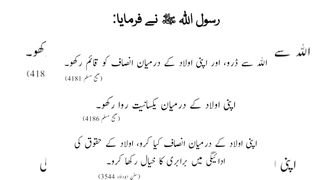 رسول اللہ ﷺ نے فرمایا:
اللہ سے
کھو۔
اللہ سے ڈرو، اور اپنی اولاد کے درمیان انصاف کو قائم رکھو۔
(صحیح مسلم 4181)
(418
اپنی اولاد کے درمیان یکسانیت روا رکھو۔
(صحیح مسلم 4186)
اپنی اولاد کے درمیان انصاف کیا کرو، اولاد کے حقوق کی
ادائیگی میں برابری کا خیال رکھا کرو۔
اپنی
(سنن ابوداود 3544)